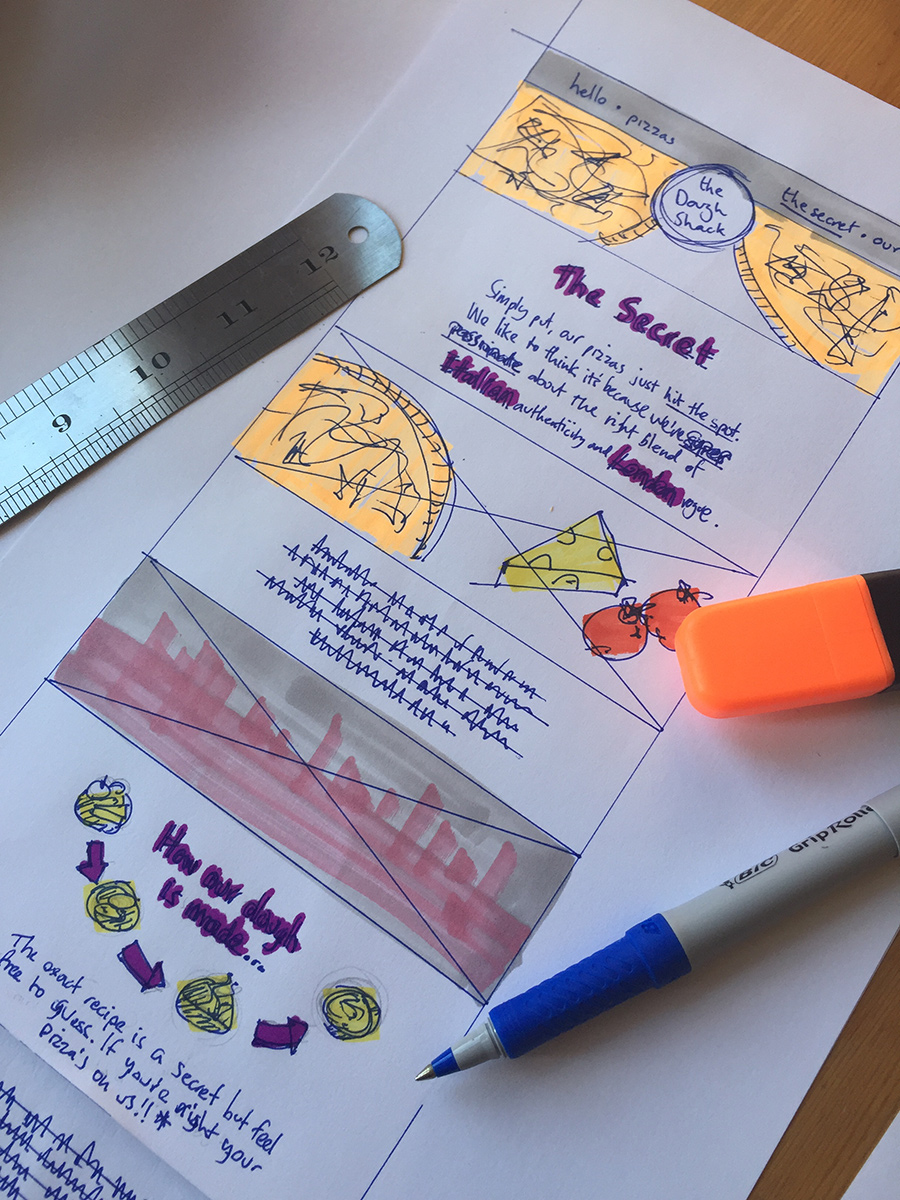 hello · pizzas
the
Dough
Shack
the secret · our
The Secret
Simply put, our pizzas just hit the spot.
We like to think it's because we're super
passionate about the right blend of
Italian authenticity and London vogue.
How our dough
is made...
The exact recipe is a secret but feel
free to guess. If you're right your
pizza's on us!! *
9
10
11
12
BIC GripRoller